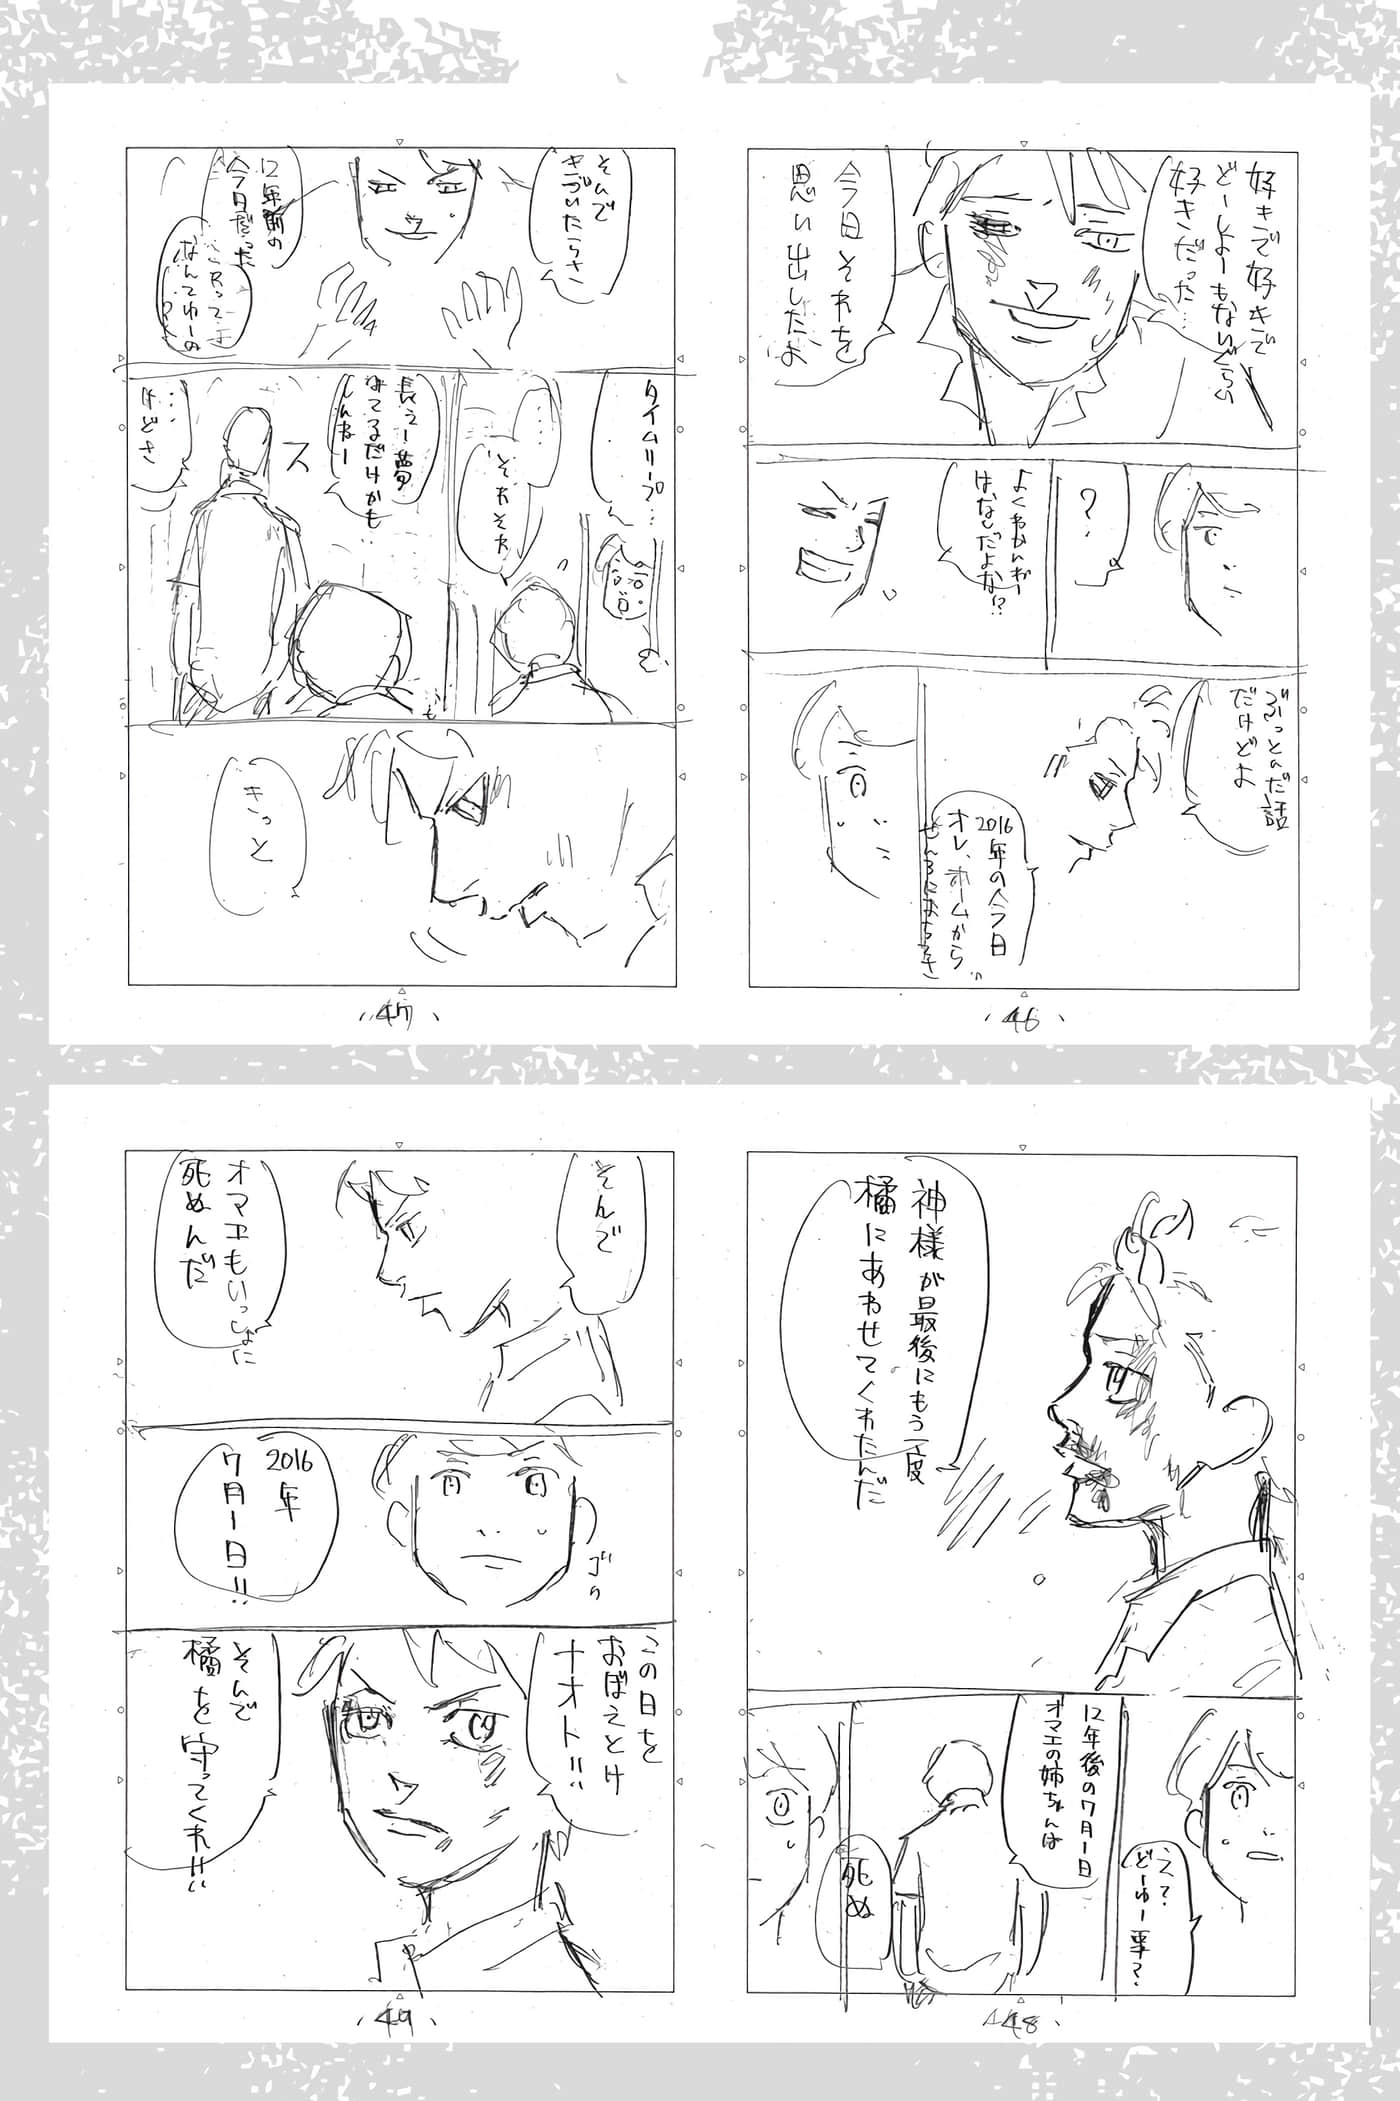 好きで好きで
どーしよーもないぐらい
好きだった…
今日それを
思い出したよ
?
よくわかんねー
はなしだよな!?
ぶっとんだ話
だけどよ
2016年の今日
オレ、ホームから
せんろにおちてさ
46
そんで
きづいたらさ
12年前の
今日だった
なんてゆーの
タイムリープ…
……
それそれ
長えー夢
みてるだけかも
しんねー
ス
…
けどさ
きっと
47
神様が最後にもう一度
橘にあわせてくれたんだ
え?
どーゆー事?
12年後の7月1日
オマエの姉ちゃんは
死ぬ
48
そんで
オマエもいっしょに
死ぬんだ
2016年
7月1日!!
ゴク
この日を
おぼえとけ
ナオト!!
そんで
橘を守ってくれ!!
49